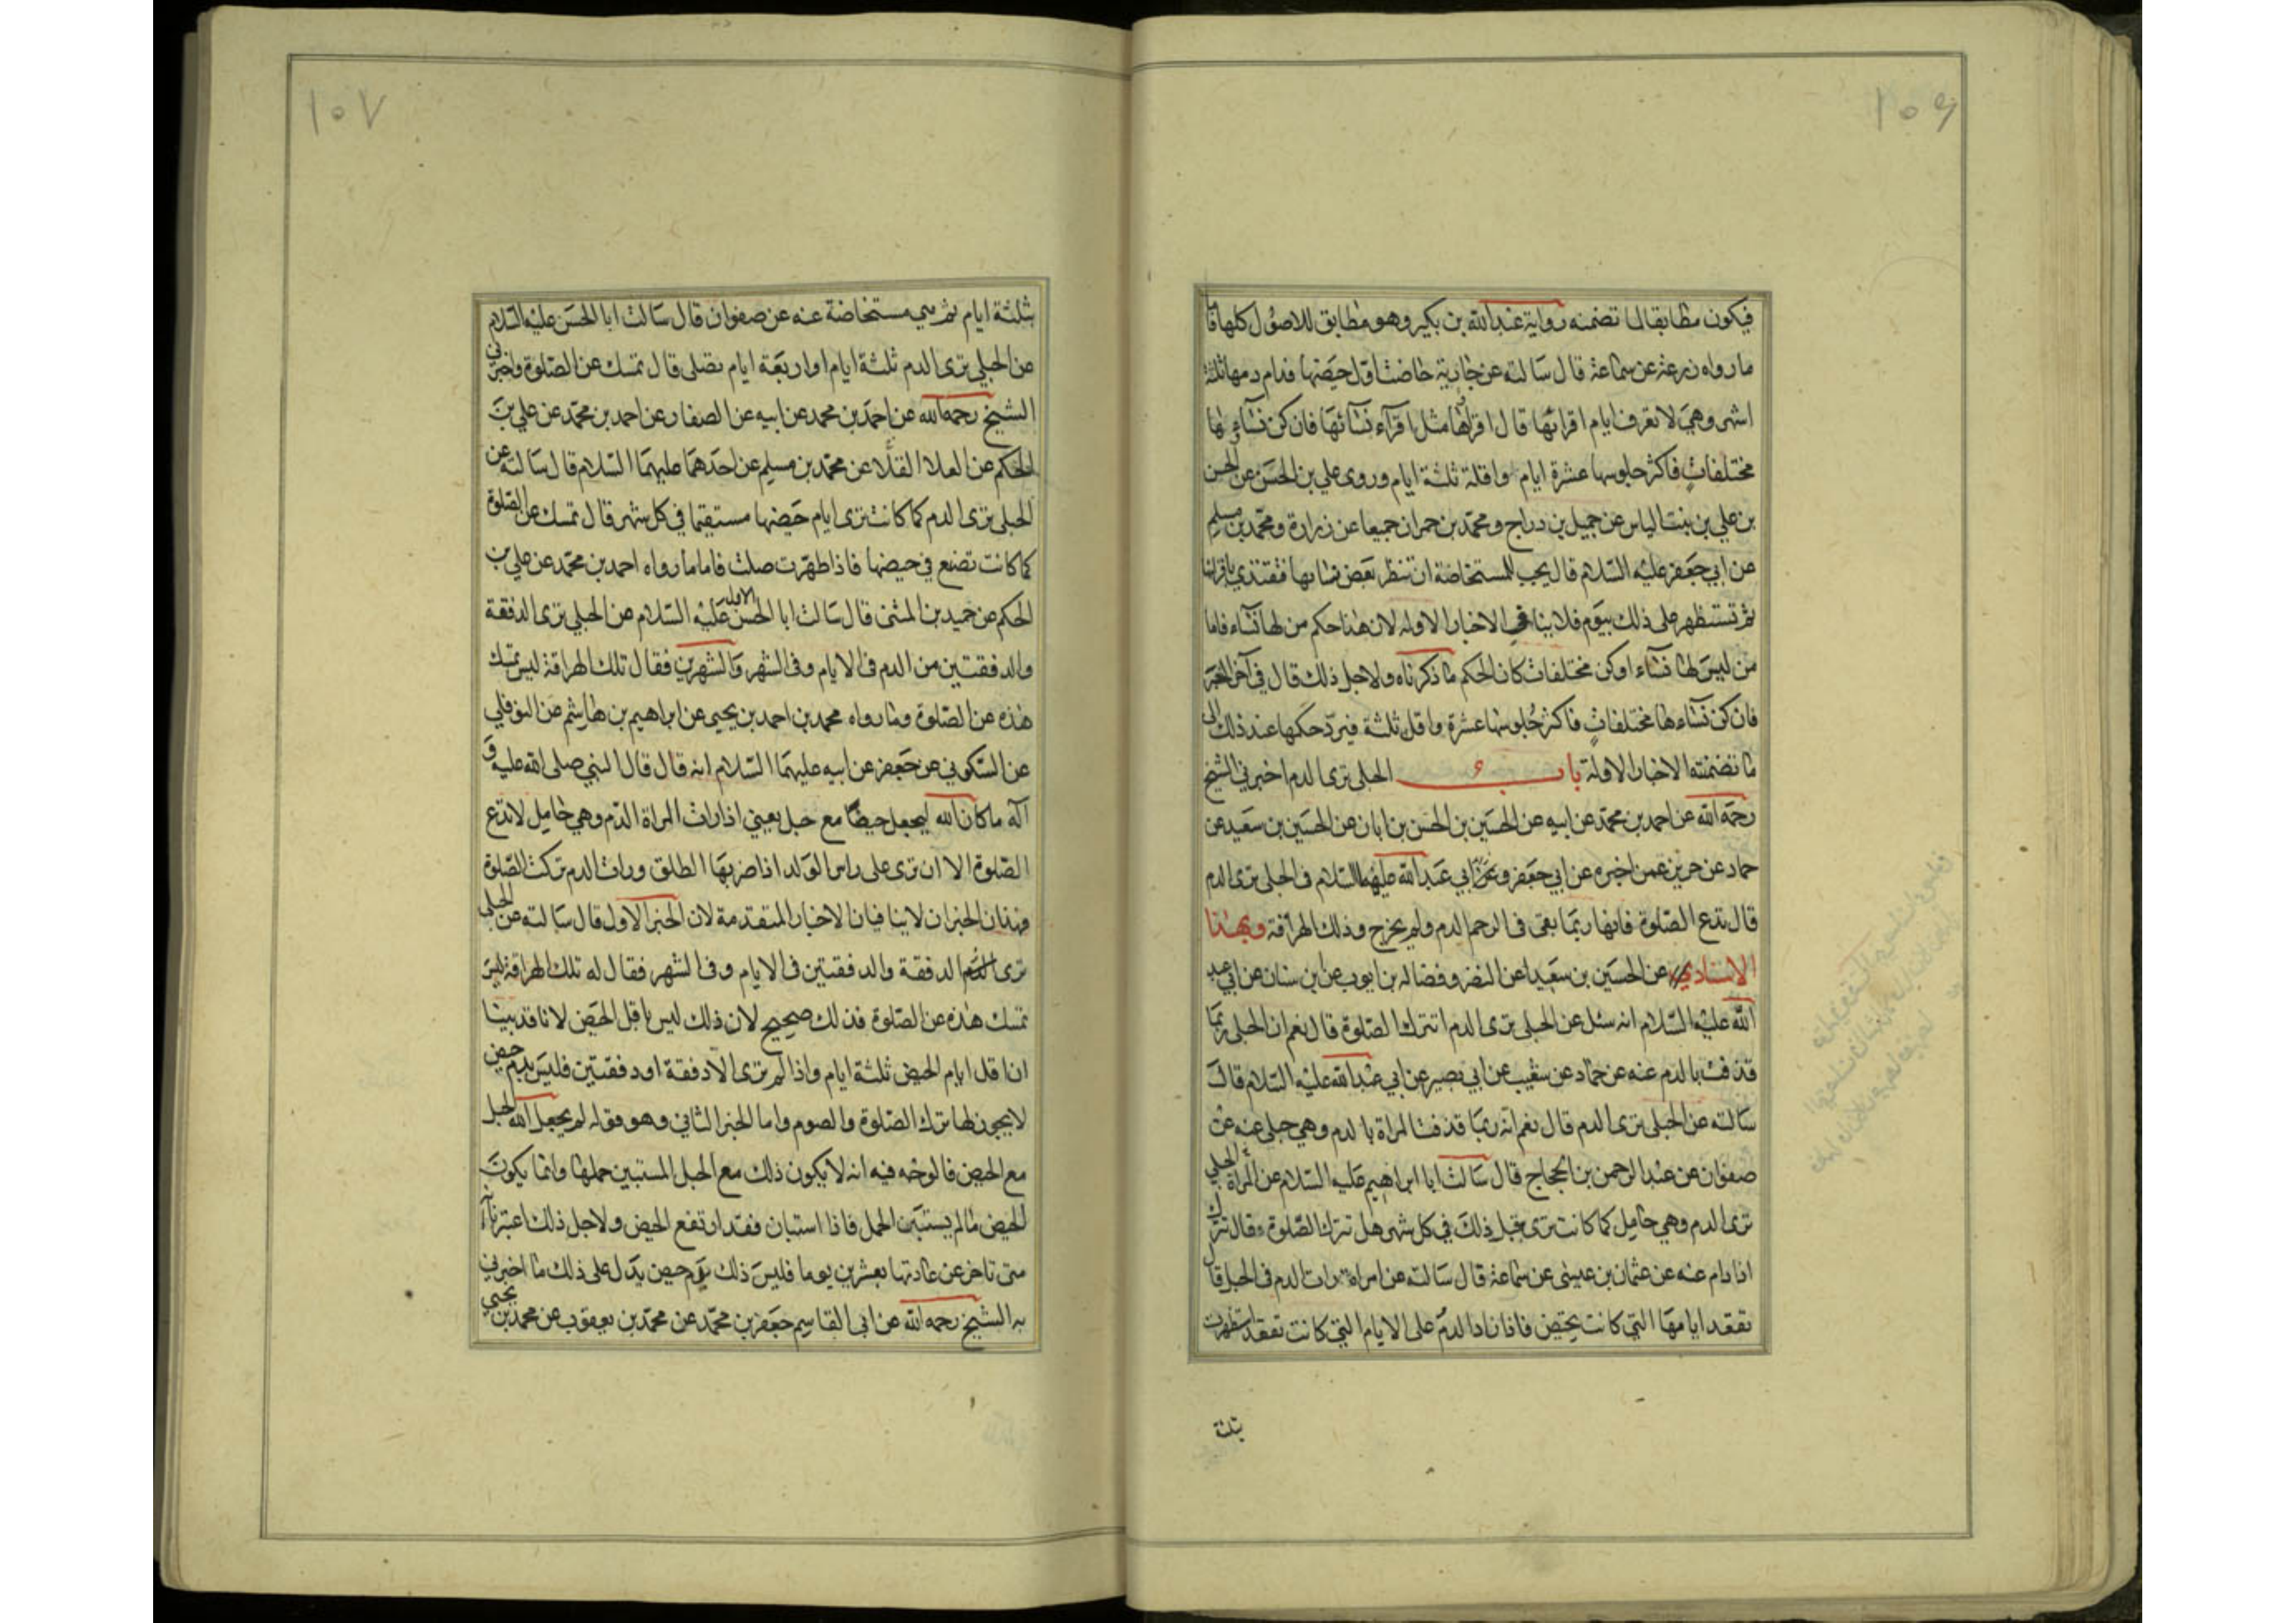 ۱۰۶
فيكون مطابقا لما تضمنه رواية عبد الله بن بكير وهو مطابق للاصول كلها فاما
ما رواه زرعة عن سماعة قال سالته عن جارية حاضت اول حيضها فدام دمها ثلثة
اشهر وهي لا تعرف ايام اقرائها قال اقراؤها مثل اقرآء نسآئها فان كن نسآءها
مختلفات فاكثر جلوسها عشرة ايام واقلة ثلثة ايام وروى علي بن الحسن عن الحسن
بن علي بن بنت الياس عن جميل بن دراج ومحمد بن حمران جميعا عن زرارة ومحمد بن مسلم
عن ابي جعفر عليه السلام قال يجب للمستحاضة ان تنظر بعض نسائها فتقتدي باقرائها
ثم تستظهر على ذلك بيوم فلا ينافي الاخبار الاولة لان هذا حكم من لها نسآء فاما
من ليس لها نسآء او كن مختلفات كان الحكم ما ذكرناه ولاجل ذلك قال في آخر الخبر
فان كن نسآءها مختلفات فاكثر جلوسها عشرة واقل ثلثة فيرد حكمها عند ذلك الى
ما تضمنته الاخبار الاولة باب الحبلى ترى الدم اخبرني الشيخ
رحمه الله عن احمد بن محمد عن ابيه عن الحسين بن الحسن بن ابان عن الحسين بن سعيد عن
حماد عن حريز عمن اخبره عن ابي جعفر وعن ابي عبد الله عليهما السلام في الحبلى ترى الدم
قال تدع الصلوة فانها ربما بقى في الرحم الدم ولم يخرج وذلك الهراقة وبهذا
الاسناد عن الحسين بن سعيد عن النضر وفضالة بن ايوب عن ابن سنان عن ابي عبد
الله عليه السلام انه سئل عن الحبلى ترى الدم اتترك الصلوة قال نعم ان الحبلى ربما
قذفت بالدم عنه عن حماد عن شعيب عن ابي بصير عن ابي عبد الله عليه السلام قال
سالته عن الحبلى ترى الدم قال نعم انه ربما قذفت المراة بالدم وهي حبلى عنه عن
صفوان عن عبد الرحمن بن الحجاج قال سالت ابا ابراهيم عليه السلام عن المراة الحبلى
ترى الدم وهي حامل كما كانت ترى قبل ذلك في كل شهر هل تترك الصلوة قال تترك
اذا دام عنه عن عثمان بن عيسى عن سماعة قال سالته عن امراة رات الدم في الحبل قال
تقعد ايامها التي كانت تحيض فاذا زاد الدم على الايام التي كانت تقعد استظهرت
بثلثة
۱۰۷
بثلثة ايام ثم هي مستحاضة عنه عن صفوان قال سالت ابا الحسن عليه السلام
عن الحبلى ترى الدم ثلثة ايام او اربعة ايام تصلى قال تمسك عن الصلوة واخبرني
الشيخ رحمه الله عن احمد بن محمد عن ابيه عن الصفار عن احمد بن محمد عن علي بن
الحكم عن العلا القلا عن محمد بن مسلم عن احدهما عليهما السلام قال سالته عن
الحبلى ترى الدم كما كانت ترى ايام حيضها مستقيما في كل شهر قال تمسك عن الصلوة
كما كانت تصنع في حيضها فاذا طهرت صلت فاما ما رواه احمد بن محمد عن علي بن
الحكم عن حميد بن المثنى قال سالت ابا الحسن الاول عليه السلام عن الحبلى ترى الدفقة
والدفقتين من الدم في الايام وفي الشهر والشهرين فقال تلك الهراقة ليس تمسك
هذه عن الصلوة وما رواه محمد بن احمد بن يحيى عن ابراهيم بن هاشم عن النوفلي
عن السكوني عن جعفر عن ابيه عليهما السلام انه قال قال النبي صلى الله عليه و
آله ما كان الله ليجعل حيضا مع حبل يعني اذا رات المراة الدم وهي حامل لا تدع
الصلوة الا ان ترى على راس الولد اذا ضربها الطلق ورات الدم تركت الصلوة
فهذان الخبران لا ينافيان الاخبار المتقدمة لان الخبر الاول قال سالته عن الحبلى
ترى الدم الدفقة والدفقتين في الايام وفي الشهر فقال له تلك الهراقة ليس
تمسك هذه عن الصلوة فذلك صحيح لان ذلك ليس باقل الحيض لانا قد بينا
ان اقل ايام الحيض ثلثة ايام واذا لم ترى الا دفقة او دفقتين فليس بدم حيض
لا يجوز لها ترك الصلوة والصوم واما الخبر الثاني وهو قوله لم يجعل الله الحبل
مع الحيض فالوجه فيه انه لا يكون ذلك مع الحبل المستبين حملها وانما يكون
الحيض ما لم يستبين الحمل فاذا استبان فقد ارتفع الحيض ولاجل ذلك اعتبرنا انه
متى تاخر عن عادتها بعشرين يوما فليس ذلك بدم حيض يدل على ذلك ما اخبرني
به الشيخ رحمه الله عن ابي القاسم جعفر بن محمد عن محمد بن يعقوب عن محمد بن يحيى